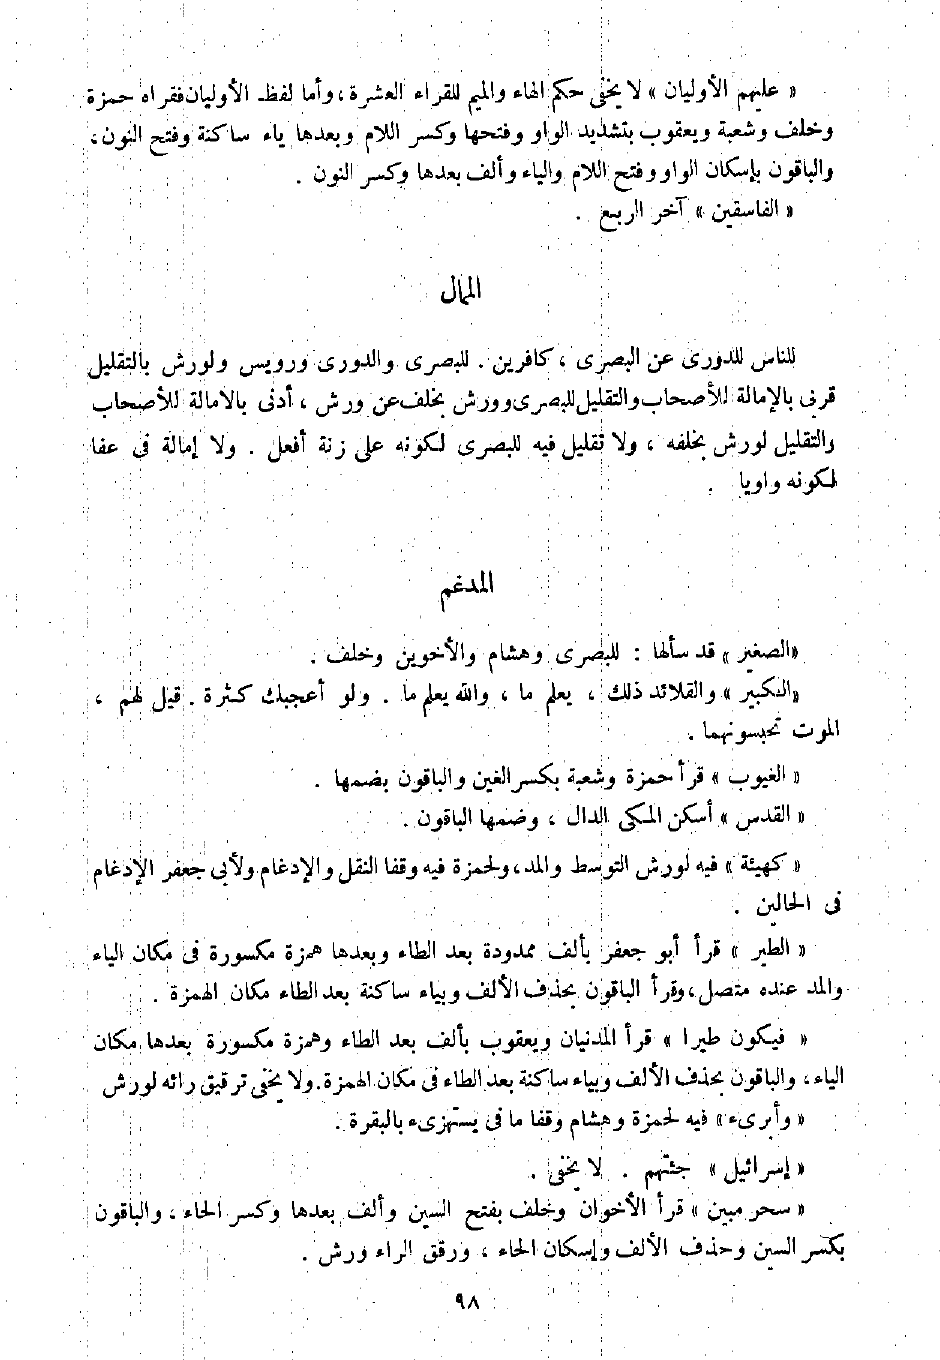 « عليهم الأوليان » لا يخفى حكم الهاء والميم للقراء العشرة ، وأما لفظ الأوليان فقراه حمزة
وخلف وشعبة ويعقوب بتشديد الواو وفتحها وكسر اللام وبعدها ياء ساكنة وفتح النون ،
والباقون بإسكان الواو وفتح اللام والياء وألف بعدها وكسر النون .
« الفاسقين » آخر الربع .
الممال
للناس للدورى عن البصرى ، كافرين . للبصرى والدورى ورويس ولورش بالتقليل
قربى بالإمالة للأصحاب والتقليل للبصرى وورش بخلف عن ورش ، أدنى بالامالة للأصحاب
والتقليل لورش بخلفه ، ولا تقليل فيه للبصرى لكونه على زنة أفعل . ولا إمالة فى عفا
لكونه واويا .
المدغم
«الصغير » قد سألها : للبصرى وهشام والأخوين وخلف .
«الكبير » والقلائد ذلك ، يعلم ما ، والله يعلم ما . ولو أعجبك كثرة . قيل لهم ،
الموت تحبسونهما .
« الغيوب » قرأ حمزة وشعبة بكسر الغين والباقون بضمها .
« القدس » أسكن المكى الدال ، وضمها الباقون .
« كهيئة » فيه لورش التوسط والمد ، ولحمزة فيه وقفا النقل والإدغام ولأبى جعفر الإدغام
فى الحالين .
« الطير » قرأ أبو جعفر بألف ممدودة بعد الطاء وبعدها همزة مكسورة فى مكان الياء
والمد عنده متصل ، وقرأ الباقون بحذف الألف وبياء ساكنة بعد الطاء مكان الهمزة .
« فيكون طيرا » قرأ المدنيان ويعقوب بألف بعد الطاء وهمزة مكسورة بعدها مكان
الياء ، والباقون بحذف الألف وبياء ساكنة بعد الطاء فى مكان الهمزة . ولا يخفى ترقيق رائه لورش
« وأبرىء » فيه لحمزة وهشام وقفا ما فى يستهزىء بالبقرة .
« إسرائيل » جئتهم . لا يخفى .
« سحر مبين » قرأ الأخوان وخلف بفتح السين وألف بعدها وكسر الحاء ، والباقون
بكسر السين وحذف الألف وإسكان الحاء ، ورقق الراء ورش .
٩٨